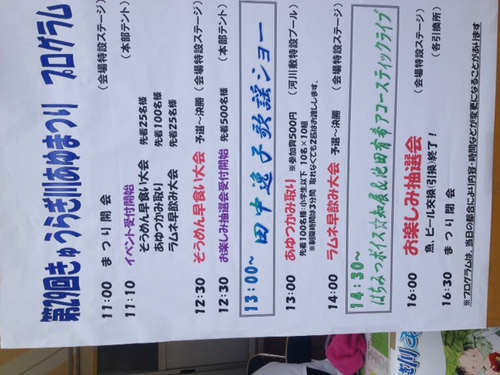 第29回きゅうらぎ川あゆまつり プログラム
11:00 まつり開会 (会場特設ステージ)
11:10 イベント受付開始 (本部テント)
そうめん早食い大会 先着25名様
あゆつかみ取り 先着100名様
ラムネ早飲み大会 先着25名様
12:30 そうめん早食い大会 予選~決勝 (会場特設ステージ)
12:30 お楽しみ抽選会受付開始 先着500名様 (本部テント)
13:00~ 田中逸子歌謡ショー
13:00 あゆつかみ取り ※参加費500円 (河川敷特設プール)
先着100名様:小学生以下 10名×10組
※制限時間は3分間 取れなくても2匹はお渡しします。
14:00 ラムネ早飲み大会 予選~決勝 (会場特設ステージ)
14:30~
はちみつボイス☆知展&池田有希アコースティックライブ
16:00 お楽しみ抽選会 (会場特設ステージ)
魚、ビール交換(引換)終了! (各引換所)
16:30 まつり閉会
※プログラムは、当日の都合により内容・時間などが変更になることがあります